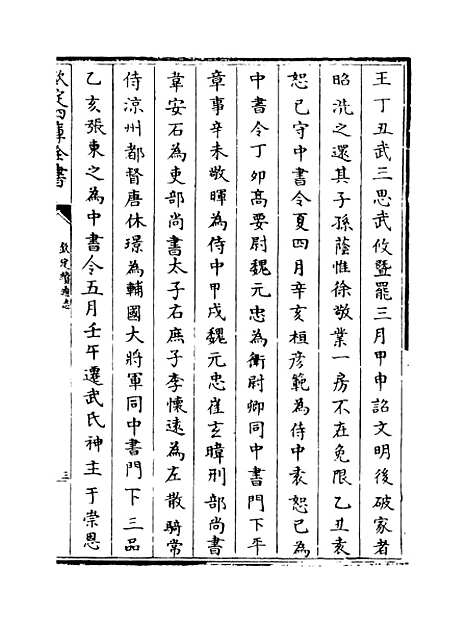 王丁丑武三思武攸暨罷三月甲申詔文明後破家者
昭洗之還其子孫蔭惟徐敬業一房不在免限乙丑袁
恕己守中書令夏四月辛亥桓彦範為侍中袁恕己為
中書令丁夘高要尉魏元忠為衛尉卿同中書門下平
章事辛未敬暉為侍中甲戌魏元忠崔玄暐刑部尚書
韋安石為吏部尚書太子右庶子李懷遠為左散騎常
侍涼州都督唐休璟為輔國大將軍同中書門下三品
乙亥張柬之為中書令五月壬午遷武氏神主于崇恩
欽定四庫全書
欽定續通志
三